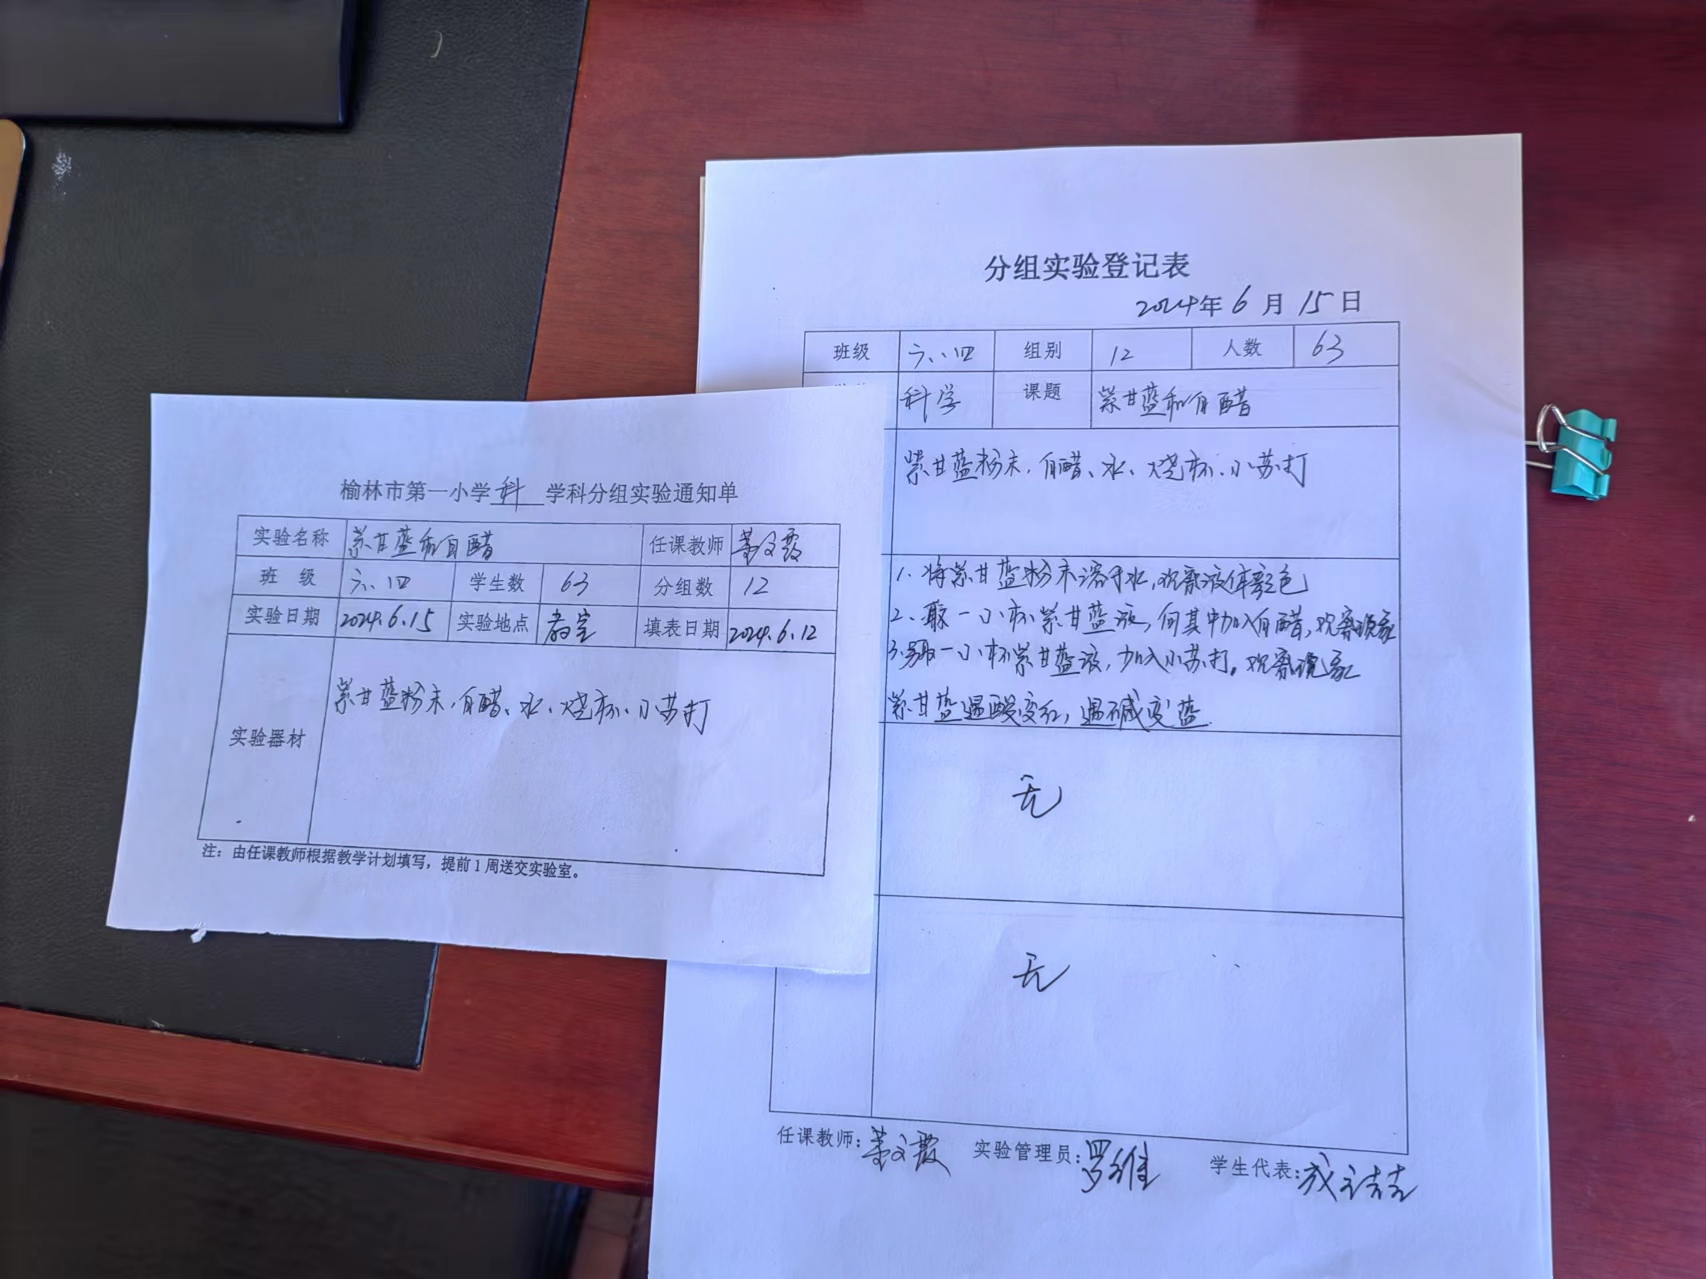 榆林市第一小学 科 学科分组实验通知单
实验名称 紫甘蓝和白醋 任课教师 董文霞
班 级 六、四 学生数 63 分组数 12
实验日期 2024.6.15 实验地点 教室 填表日期 2024.6.12
实验器材 紫甘蓝粉末、白醋、水、烧杯、小苏打
注：由任课教师根据教学计划填写，提前1周送交实验室。
分组实验登记表
2024年 6 月 15 日
班级 六、四 组别 12 人数 63
科学 课题 紫甘蓝和白醋
紫甘蓝粉末、白醋、水、烧杯、小苏打
1、将紫甘蓝粉末溶于水，观察液体颜色
2、取一小杯紫甘蓝液，向其中加入白醋，观察现象
3、另取一小杯紫甘蓝液，加入小苏打。观察现象
紫甘蓝遇酸变红，遇碱变蓝.
无
无
任课教师：董文霞 实验管理员：罗维 学生代表：